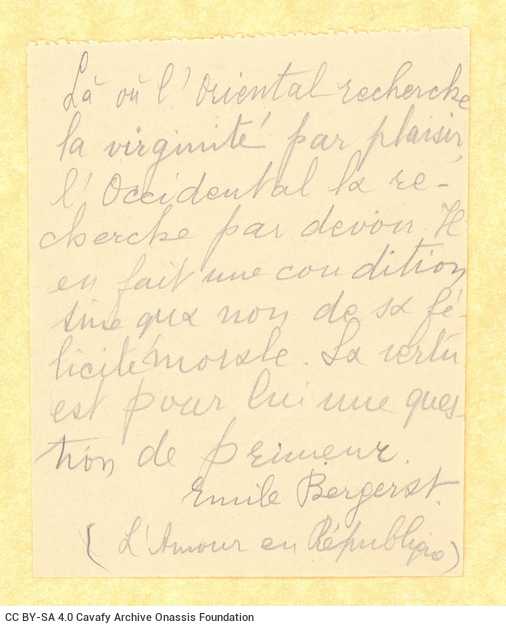 Là où l'Oriental recherche
la virginité par plaisir,
l'Occidental la re-
cherche par devoir. Il
en fait une condition
sine qua non de sa fé-
licité morale. La vertu
est pour lui une ques-
tion de primeur.
Emile Bergerat.
(L'Amour en République)
CC BY-SA 4.0 Cavafy Archive Onassis Foundation